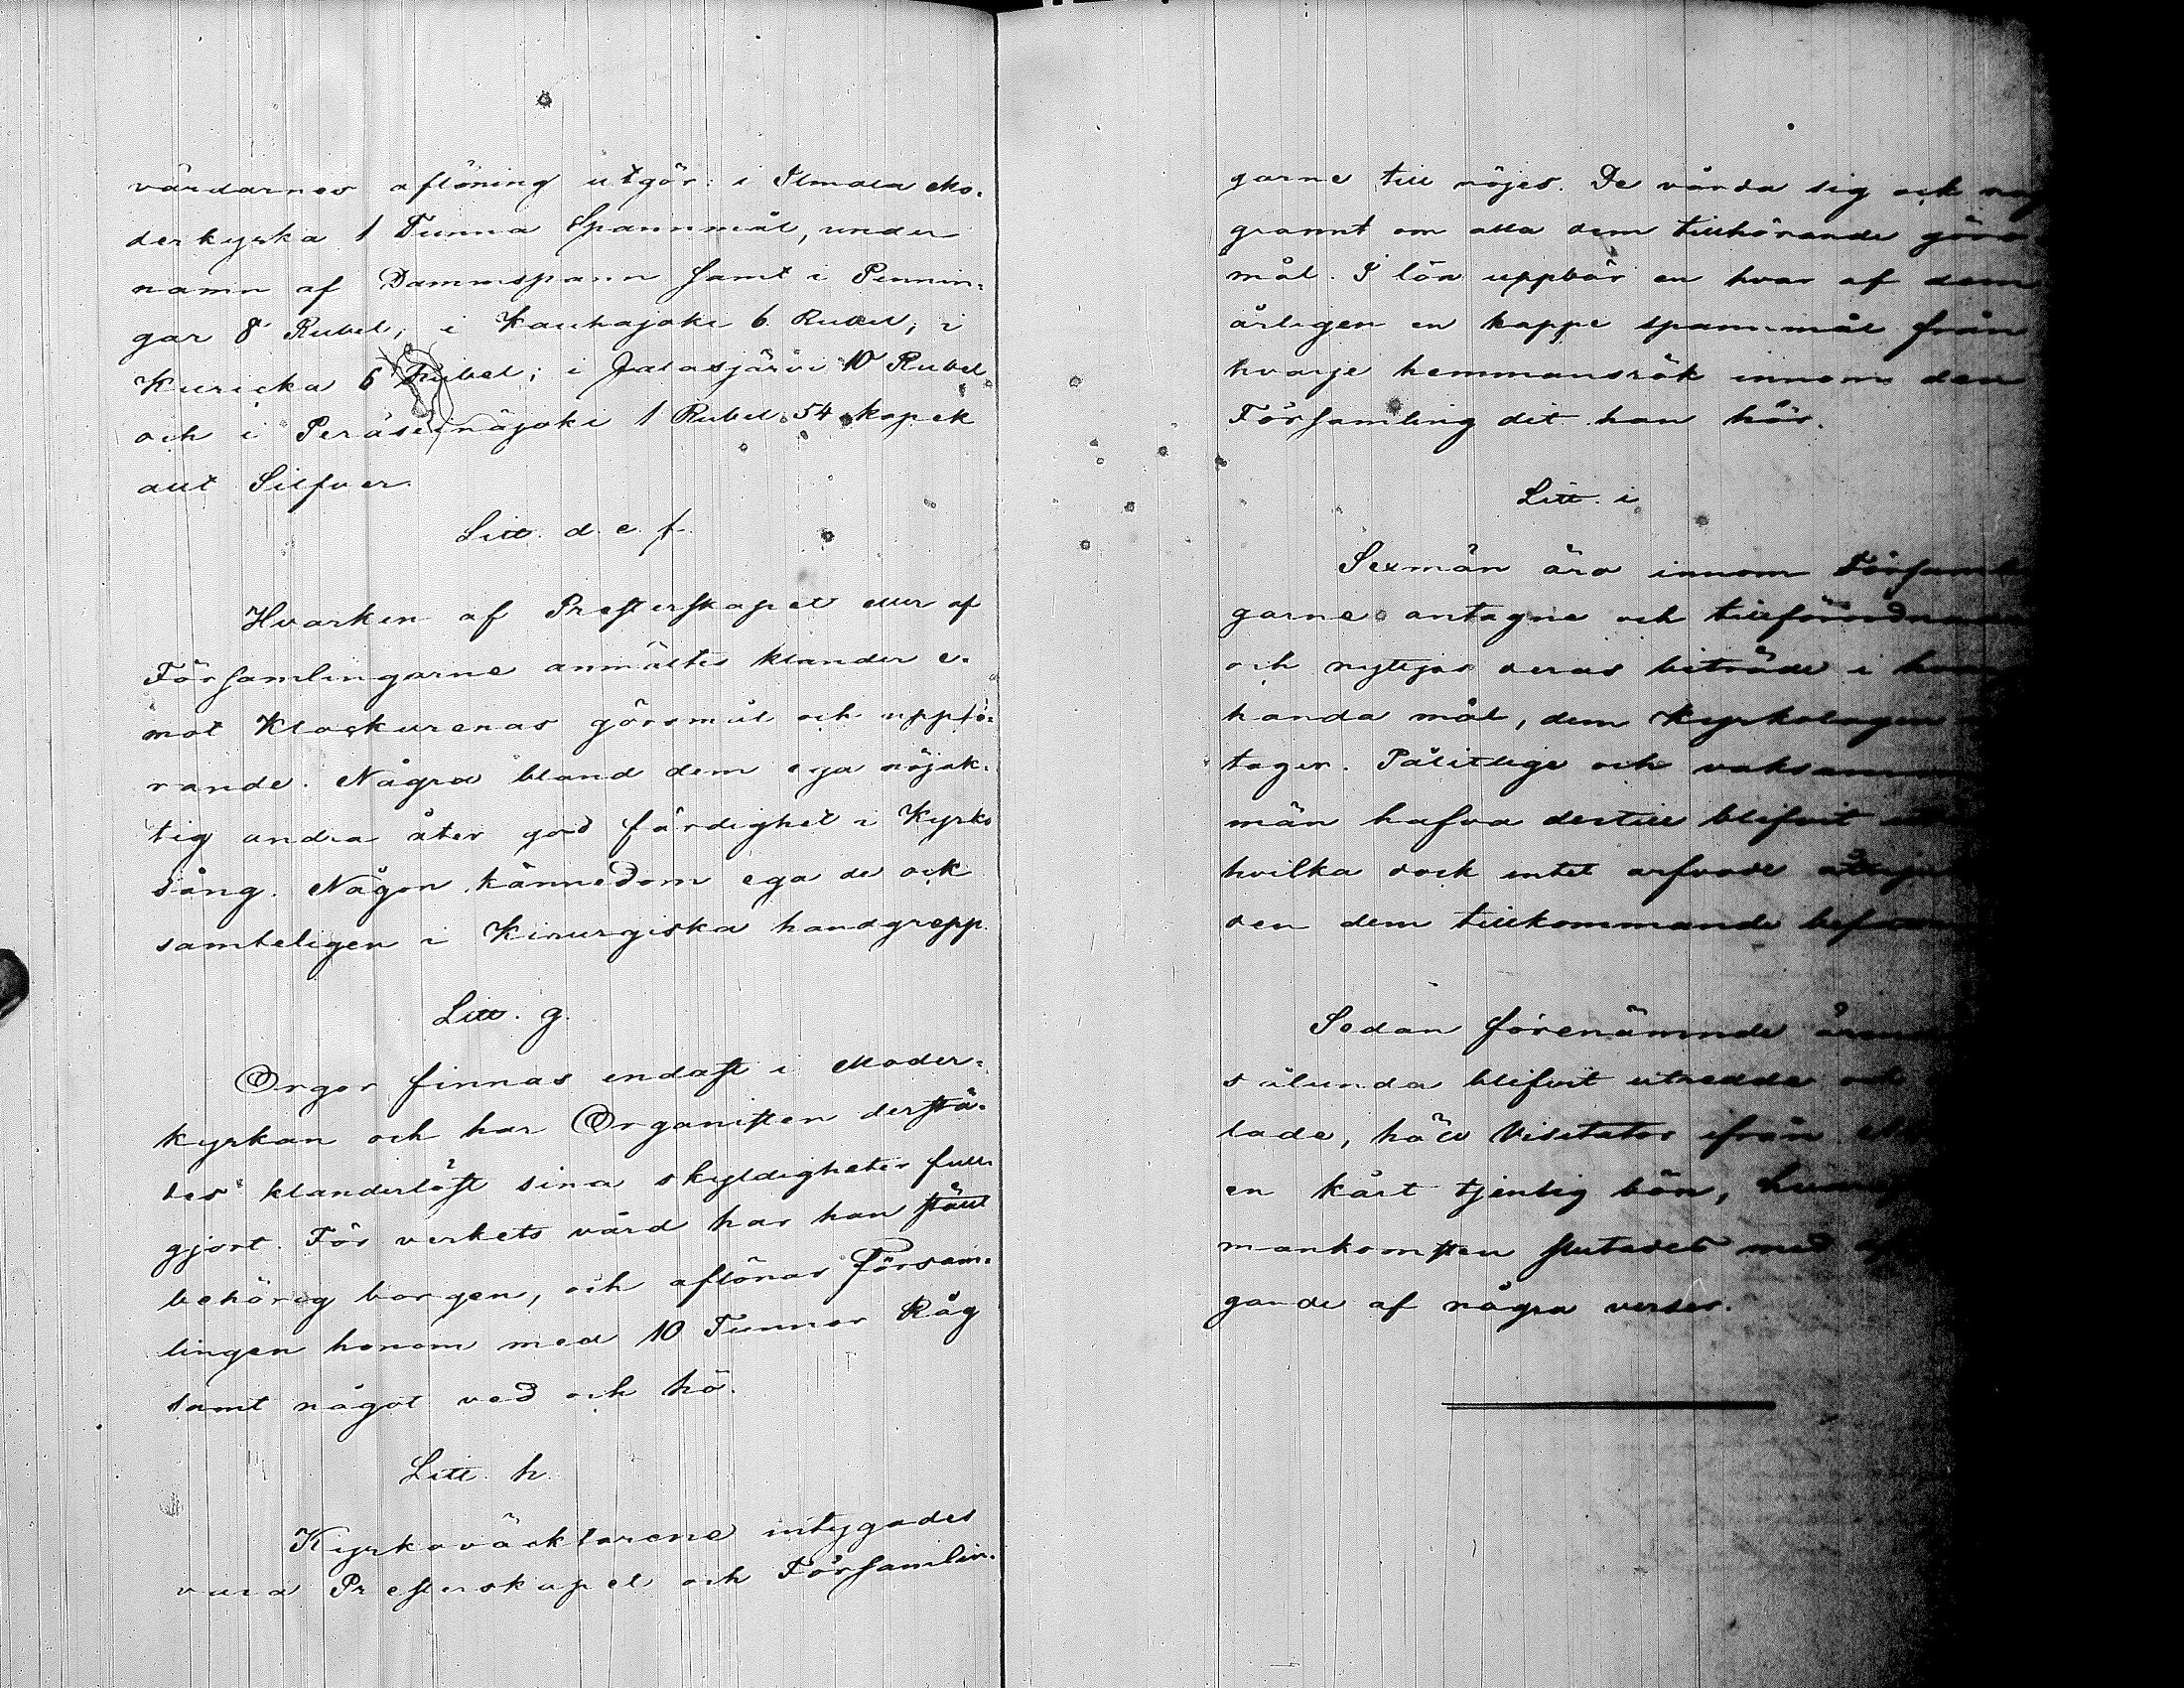 vårdarnes aflöning utgör i Ilmola Mo-
derkyrka 1 Tunna Spannmål, under
namn af Dammspann samt i Pennin-
gar 8 Rubel; i Kauhajoki 6 Rubel; i
Kuricka 6 Rubel; i Jalasjärvi 10 Rubel
och i Peräseinäjoki 1 Rubel 54 kopek
allt Silfver.
Litt. d. e. f.
Hvarken af Presterskapet eller af
Församlingarne anmältes klander e-
mot Klockurenas göromål och uppfö-
rande. Några bland dem ega nöjak-
tig andra åter god färdighet i Kyrko
sång. Någon kännedom ega de ock
samteligen i Kirurgiska handgrepp.
Litt. g.
Orgor finnas endast i Moder-
kyrkan och har Organisten derstä-
des klanderlöst sina skyldigheter full-
gjort. För verkets vård har han ställt
behörig borgen, och aflönar Försam-
lingen honom med 10 Tunnor Råg
samt något ved och hö.
Litt. h.
Kyrkoväcktarene intygades
vara Presterskapet och Församlin-
garne till nöjes. De vårda sig ock
grannt om alla dem tillhörande göro
mål. I lön uppbär en hvar af dem
årligen en kappe spannmål från
hvarje hemmansrök innom den
Församling dit han hör.
Litt. i
Sexmän äro innom
garne antagne och tillförordnade
och nyttjas deras biträde i
handa mål, dem Kyrkolagen
tager. Pålitlige och vaksamme
män hafva dertill blifvit
hvilka dock intet arfvode
den dem tillkommande
Sedan förenämnde
sålunda blifvit utredde och
lade, höll Visitator ifrån
en kårt tjenlig bön,
mankomsten slutades med
gande af några verser.